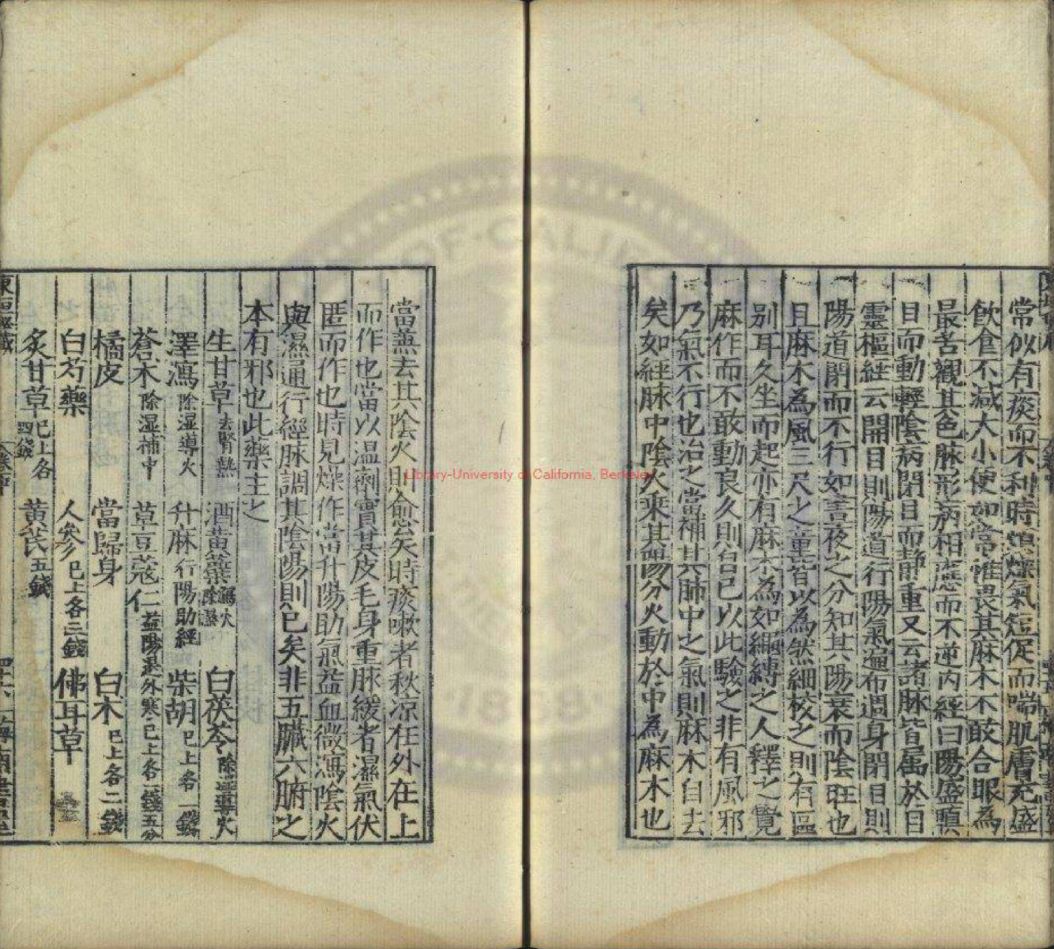 常似有痰而不利時煩燥氣短促而喘肌膚充盛
飲食不減大小便如常惟畏其麻木不敢合眼為
最苦觀其色脉形病相應而不逆內經曰陽盛瞋
目而動輕陰病閉目而靜重又云諸脉皆屬於目
靈樞經云開目則陽道行陽氣遍布周身閉目則
陽道閉而不行如晝夜之分知其陽衰而陰旺也
且麻木為風三尺之童皆以為然細校之則有區
别耳久坐而起亦有麻木為如繩縛之人釋之覺
麻作而不敢動良久則自已以此驗之非有風邪
乃氣不行也治之當補其肺中之氣則麻木自去
矣如經脉中陰火乘其陽分火動於中為麻木也
當兼去其陰火則愈矣時痰嗽者秋凉在外在上
而作也當以温劑實其皮毛身重脉緩者濕氣伏
匿而作也時見燥作當升陽助氣益血微瀉陰火
與濕通行經脉調其陰陽則已矣非五臟六腑之
本有邪也此藥主之
生甘草去腎熱 酒黄蘗瀉火除濕 白茯苓除濕導火
澤瀉除濕導火 升麻行陽助經 柴胡已上各一錢
蒼木除濕補中 草豆蔻仁益陽退外寒已上各二錢五分
橘皮 當歸身 白木已上各二錢
白芍藥 人參已上各三錢 佛耳草
炙甘草已上各四錢 黄芪五錢
Library-University of California, Berkeley